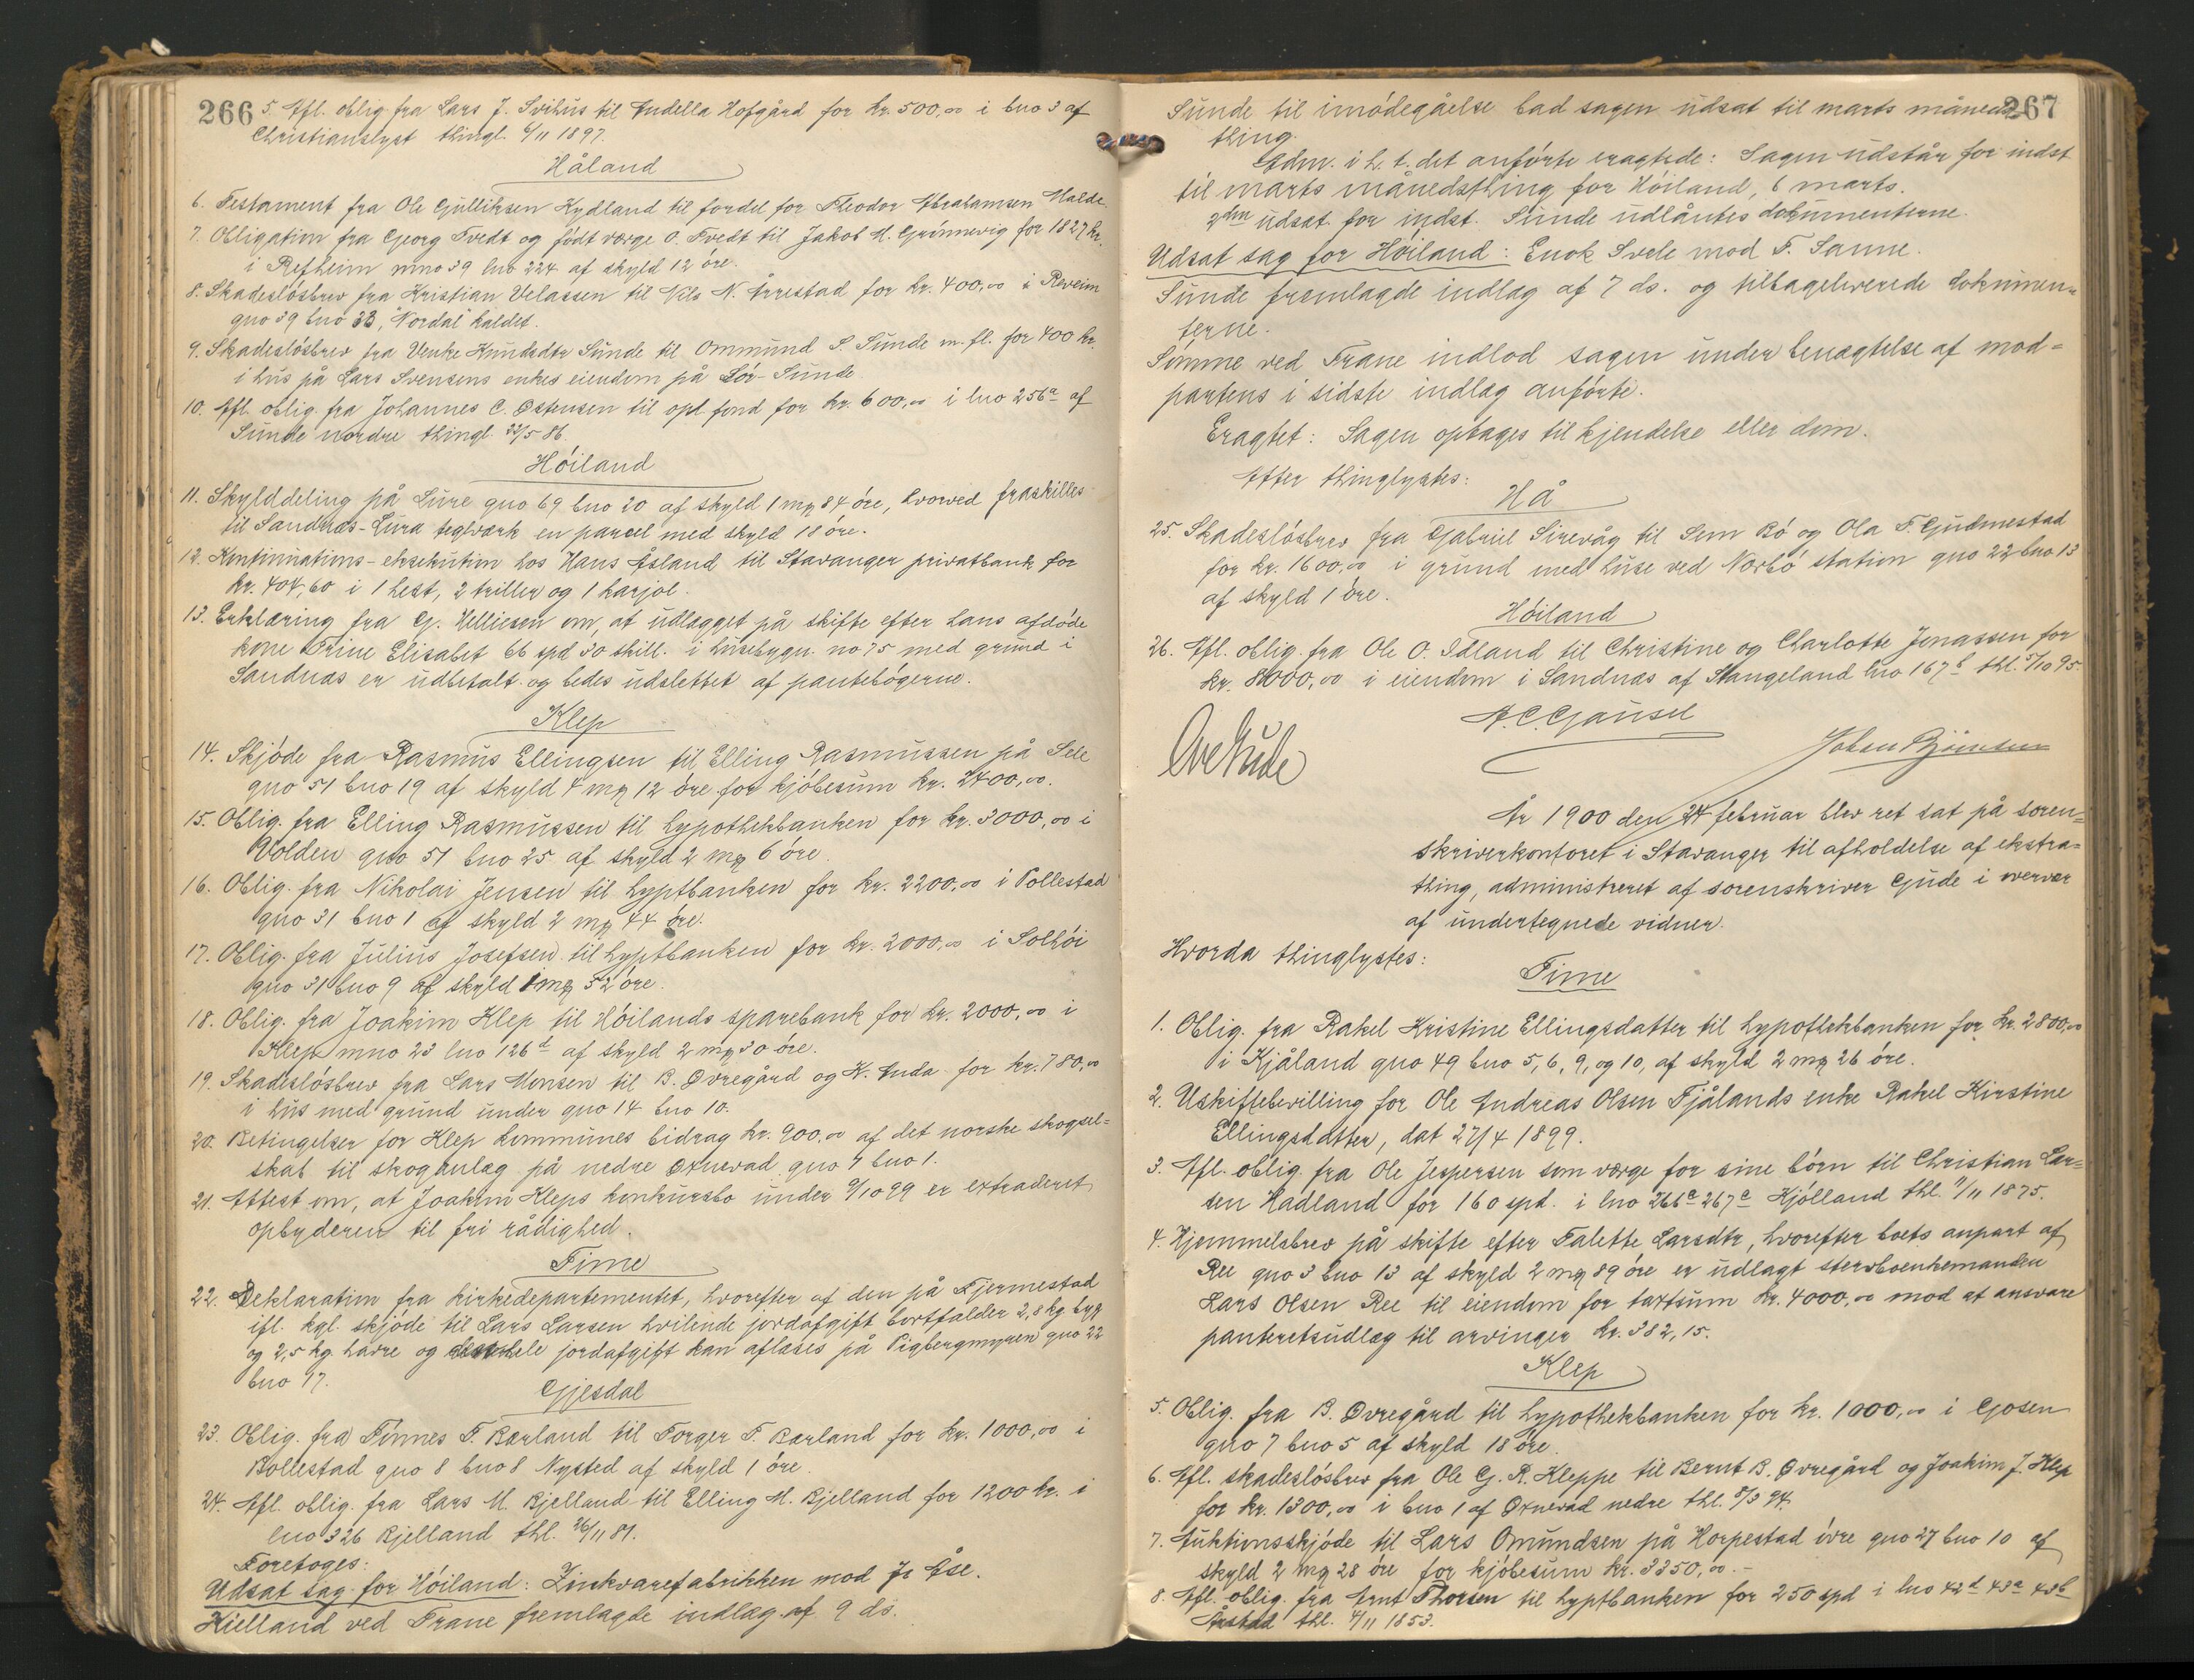 266
5. Afl. oblig. fra Lars J. Svihus til Andella Hofgård for kr. 500,00 i bno 3 af
Christianslyst thingl. 4/11 1897.
Håland
6. Testament fra Ole Gulliksen Kydland til fordel for Theodor Abrahamsen Malde.
7. Obligation fra Georg Tvedt og født værge O. Tvedt til Jakob M. Grønnevig for 1827 kr.
i Refheim mno 39 lno 224 af skyld 12 øre.
8. Skadesløsbrev fra Kristian Velassen til Nils N. Årrestad for kr. 400,00 i Reveim
gno 39 bno 33, "Nordal" kaldet.
9. Skadesløsbrev fra Venke Knudsdtr Sunde til Ommund S. Sunde m. fl. for 400 kr.
i hus på Lars Svensens enkes eiendom på Sør-Sunde.
10. Afl. oblig. fra Johannes C. Østensen til opl. fond for kr. 600,00 i lno 256a af
Sunde nordre thingl. 22/5 86.
Høiland
11. Skylddeling på Lure gno 69 bno 20 af skyld 1 mrk 84 øre, hvorved fraskilles
til Sandnæs-Lura teglværk en parcel med skyld 18 øre.
12. Kontinuations-eksekution hos Hans Åsland til Stavanger privatbank for
kr. 404,60 i 1 hest, 2 triller og 1 karjol.
13. Erklæring fra G. Helliesen om, at udlægget på skifte efter hans afdøde
kone Trine Elisabet 66 spd 30 skill. i husebygn. no 75 med grund i
Sandnæs er udbetalt og bedes udslettet af pantebøgerne.
Klep
14. Skjøde fra Rasmus Ellingsen til Elling Rasmussen på Sele
gno 51 bno 19 af skyld 4 mrk 12 øre for kjøbesum kr. 2400,00.
15. Oblig. fra Elling Rasmussen til hypothekbanken for kr. 3000,00 i
Volden gno 51 bno 25 af skyld 2 mrk 6 øre.
16. Oblig. fra Nikolai Jensen til hyptbanken for kr. 2200,00 i Pollestad
gno 31 bno 1 af skyld 2 mrk 44 øre.
17. Oblig. fra Julius Josefsen til hyptbanken for kr. 2000,00 i Solhøi
gno 31 bno 9 af skyld 1 mrk 52 øre.
18. Oblig. fra Joakim Klep til Høilands sparebank for kr. 2000,00 i
Klep mno 23 lno 126d af skyld 2 mrk 30 øre.
19. Skadesløsbrev fra Lars Monsen til B. Øvregård og K. Anda for kr. 780,00
i hus med grund under gno 14 bno 10.
20. Betingelser for Klep kommunes bidrag kr. 900,00 af det norske skogsel=
skab til skoganlæg på nedre Øxnevad gno 7 bno 1.
21. Attest om, at Joakim Kleps konkursbo under 9/10 99 er extraderet
opbyderen til fri rådighed.
Time
22. Deklaration fra kirkedepartementet, hvorefter af den på Fjermestad
ifl. kgl. skjøde til Lars Larsen hvilende jordafgift bortfalder 2,8 kg byg
og 2,5 kg havre og hele jordafgift kan aflæses på Pigbergmyren gno 22
bno 17.
Gjesdal
23. Oblig. fra Tønnes T. Bærland til Torger T. Bærland for kr. 1000,00 i
Bollestad gno 8 bno 8 Nysted af skyld 1 øre.
24. Afl. oblig. fra Lars M. Bjelland til Elling M. Bjelland for 1200 kr. i
lno 326 Bjelland thl. 26/11 81.
Foretoges:
Udsat sag for Høiland: Zinkvarefabrikken mod Js Åse.
Kielland ved Trane fremlagde indlæg af 9 ds.
267
Sunde til imødegåelse bad sagen udsat til marts måneds
thing.
Adm. i h. t. det anførte eragtede: Sagen udstår for indst
til marts månedsthing for Høiland, 6 marts.
2den udsat for indst. Sunde udlåntes dokumenterne.
Udsat sag for Høiland: Enok Svele mod T. Sanne.
Sunde fremlagde indlæg af 7 ds. og tilbageleverede dokumen=
terne.
Sømme ved Trane indlod sagen under benægtelse af mod=
partens i sidste indlæg anførte.
Eragtet: Sagen optages til kjendelse eller dom.
Efter thinglystes:
Hå
25. Skadesløsbrev fra Gabriel Sirevåg til Sem Bø og Ola T. Gudmestad
for kr. 1600,00 i grund med huse ved Nærbø station gno 22 bno 13
af skyld 1 øre.
Høiland
26. Afl. oblig. fra Ole O. Idland til Christine og Charlotte Jonassen for
kr. 8000,00 i eiendom i Sandnæs af Stangeland lno 167b thl. 5/10 95.
A. C. Gausel
Ove Gude
Johan Bjørnsen
År 1900 den 24 februar blev ret sat på soren=
skriverkontoret i Stavanger til afholdelse af ekstra=
thing, administreret af sorenskriver Gude i overvær
af undertegnede vidner.
Hvorda thinglystes:
Time
1. Oblig. fra Rakel Kristine Ellingsdatter til hypothekbanken for kr. 2800,00
i Kjåland gno 49 bno 5, 6, 9, og 10, af skyld 2 mrk 26 øre.
2. Uskiftebevilling for Ole Andreas Olsen Fjålands enke Rakel Kirstine
Ellingsdatter, dat 27/4 1899.
3. Afl. oblig. fra Ole Jespersen som værge for sine børn til Christian Lar=
sen Hadland for 160 spd. i lno 266a 267a Kjølland thl. 11/11 1875.
4. Hjemmelsbrev på skifte efter Talette Larsdtr, hvorefter boets anpart af
Ree gno 3 bno 13 af skyld 2 mrk 89 øre er udlagt stervboenkemanden
Lars Olsen Ree til eiendom for taxtsum kr. 4000,00 mod at ansvare
panteretsudlæg til arvinger kr. 382,15.
Klep
5. Oblig. fra B. Øvregård til hypothekbanken for kr. 1000,00 i Gosen
gno 7 bno 5 af skyld 18 øre.
6. Afl. skadesløsbrev fra Ole G. R. Kleppe til Bernt B. Øvregård og Joakim J. Klep
for kr. 1300,00 i bno 1 af Øxnevad nedre thl. 5/3 94.
7. Auktionsskjøde til Lars Omundsen på Horpestad øvre gno 27 bno 10 af
skyld 2 mrk 28 øre for kjøbesum kr. 3350,00.-
8. Afl. oblig. fra Arnt Thorsen til hyptbanken for 250 spd i lno 42d 43a 43b
thl. 4/11 1853.